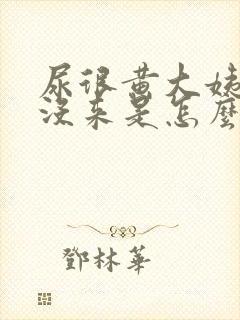 尿很黄大姨
没来是怎么
鄧林華